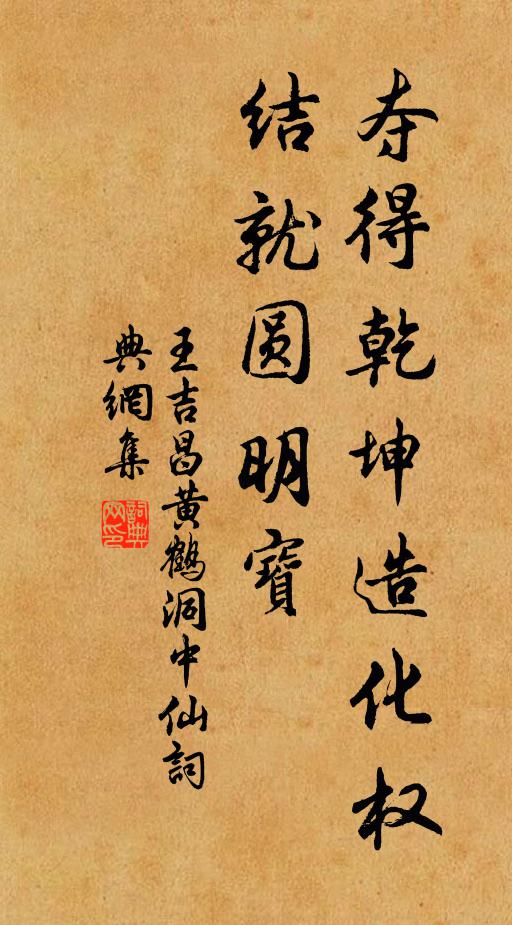 夺得乾坤造化权
结就圆明寶
王吉昌黄鶴洞中仙詞
典網集
詞典網印